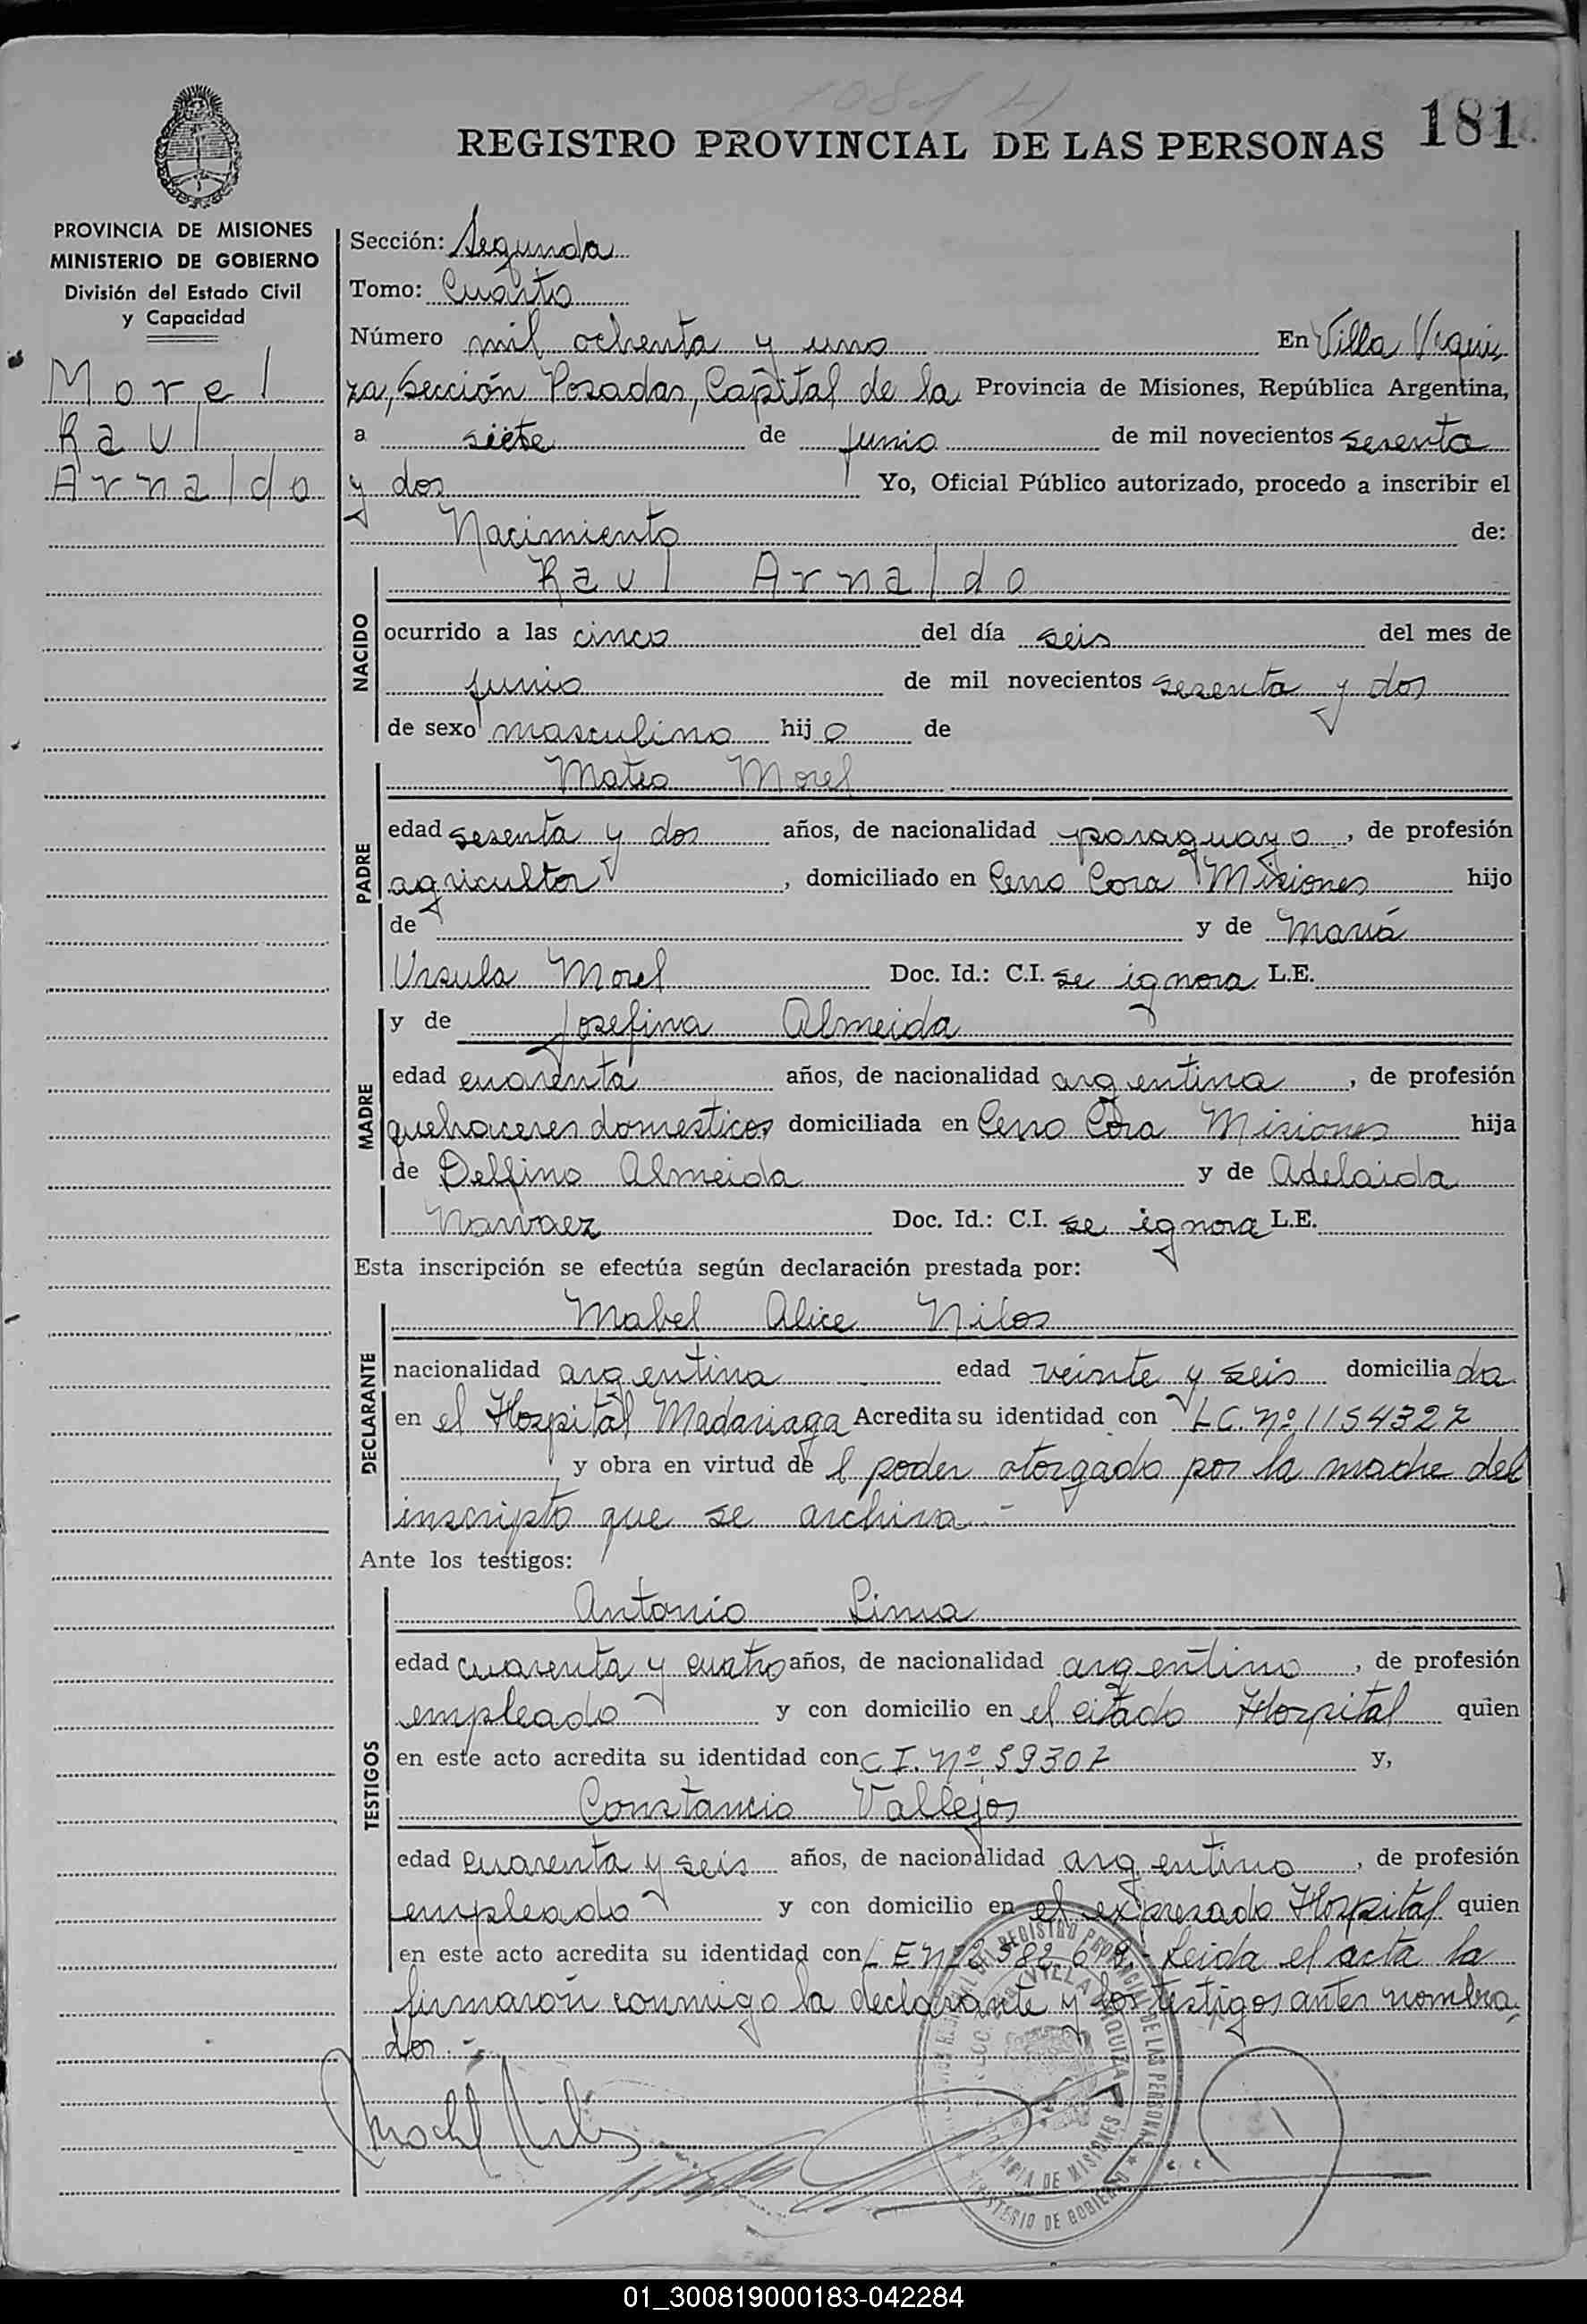 1081
181
REGISTRO PROVINCIAL DE LAS PERSONAS
PROVINCIA DE MISIONES
MINISTERIO DE GOBIERNO
División del Estado Civil
y Capacidad
Morel
Raul
Arnaldo
Sección: Segunda
Tomo: Cuarto
Número mil ochenta y uno En Villa Urqui
za, Sección Posadas, Capital de la Provincia de Misiones, República Argentina,
a siete de junio de mil novecientos sesenta
y dos Yo, Oficial Público autorizado, procedo a inscribir el
Nacimiento de:
NACIDO
Raul Arnaldo
ocurrido a las cinco del día seis del mes de
junio de mil novecientos sesenta y dos
de sexo masculino hijo de
PADRE
Mateo Morel
edad sesenta y dos años, de nacionalidad paraguayo, de profesión
agricultor, domiciliado en Cerro Cora Misiones hijo
de y de María
Ursula Morel Doc. Id.: C.I. se ignora L.E.
MADRE
y de Josefina Almeida
edad cuarenta años, de nacionalidad argentina, de profesión
quehaceres domesticos domiciliada en Cerro Cora Misiones hija
de Delfino Almeida y de Adelaida
Narvaez Doc. Id.: C.I. se ignora L.E.
Esta inscripción se efectúa según declaración prestada por:
DECLARANTE
Mabel Alice Nilos
nacionalidad argentina edad veinte y seis domiciliada
en el Hospital Madariaga Acredita su identidad con L.C. Nº 1154327
y obra en virtud del poder otorgado por la madre del
inscripto que se archiva.-
Ante los testigos:
TESTIGOS
Antonio Lima
edad cuarenta y cuatro años, de nacionalidad argentino, de profesión
empleado y con domicilio en el citado Hospital quien
en este acto acredita su identidad con C.I. Nº 59307 y,
Constancio Vallejos
edad cuarenta y seis años, de nacionalidad argentino, de profesión
empleado y con domicilio en el expresado Hospital quien
en este acto acredita su identidad con L E Leida el acta la
firmaron conmigo la declarante y los testigos antes nombra
dos.-
VILLA URQUIZA
PROVINCIA DE MISIONES
MINISTERIO DE GOBIERNO
01_300819000183-042284